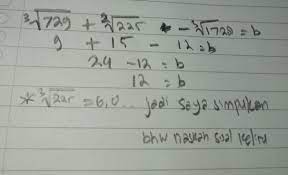 ³√729 + ²√225 - ³√1728 = b
9 + 15 - 12 = b
24 - 12 = b
12 = b
* ³√225 = 6,0... jadi saya simpulkan
bhw naskah soal keliru